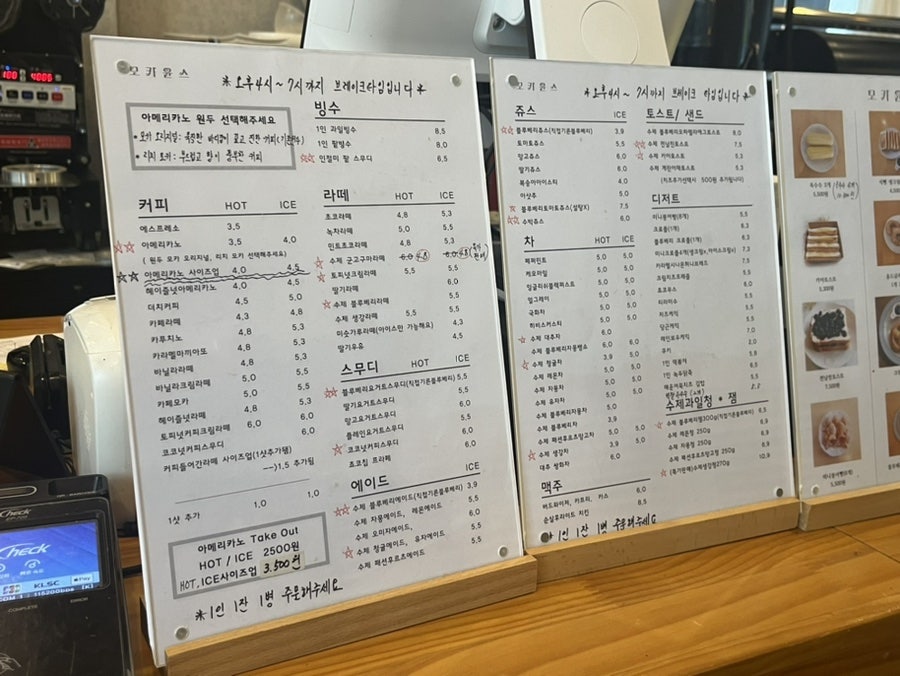 모키욜스
※오후4시~7시까지 브레이크타임입니다※
아메리카노 원두 선택해주세요
• 모카 오리지널: 묵직한 바디감이 깊고 진한 커피
• 리치 모카: 부드럽고 향이 풍부한 커피
커피 HOT ICE
에스프레소 3,5
☆☆ 아메리카노 3,5 4,0
( 원두 모카 오리지널, 리치 모카 선택해주세요)
☆☆ 아메리카노 사이즈업 4,0 4,5
헤이즐넛아메리카노 4,0 4,5
더치커피 4,5 5,0
카페라떼 4,3 4,8
카푸치노 4,8 5,3
카라멜마끼아또 4,8 5,3
바닐라라떼 4,8 5,3
바닐라크림라떼 5,3
카페모카 5,0 5,3
헤이즐넛라떼 4,8 5,3
토피넛커피크림라떼 6,0 6,0
코코넛커피스무디 6,0
커피들어간라떼 사이즈업(1샷추가됨)
--)1,5 추가됨
1샷 추가 1,0 1,0
아메리카노 Take Out
HOT / ICE 2500원
HOT, ICE사이즈업 3.500원
※1인 1잔 1병 주문해주세요
빙수
1인 과일빙수 8,5
1인 팥빙수 8,0
☆☆ 인절미 팥 스무디 6,5
라떼 HOT ICE
초코라떼 4,8 5,3
녹차라떼 5,0 5,5
민트초코라떼 4,8 5,3
☆ 수제 군고구마라떼 6,0 4.8 6,0 4.8
☆ 토피넛크림라떼 5,5 5,5
딸기라떼 6,0
☆ 수제 블루베리라떼 5,5
수제 생강라떼 5,5 5,5
미숫가루라떼(아이스만 가능해요) 4,3
딸기우유
스무디 HOT ICE
☆☆ 블루베리요거트스무디(직접기른블루베리) 5,5
딸기요거트스무디
망고요거트스무디
플레인요거트스무디
☆ 코코넛커피스무디 6,0
초코칩 프라페
에이드 ICE
☆☆ 수제 블루베리에이드(직접기른블루베리) 3,9
수제 자몽에이드, 레몬에이드 5,5
수제 오미자에이드, 6,0
☆ 수제 청귤에이드, 유자에이드 5,5
수제 패션후르츠에이드
모키욜스
※오후4시~7시까지 브레이크 타임입니다※
쥬스 ICE
☆☆ 블루베리쥬스(직접기른블루베리) 3,9
토마토쥬스 5,5
망고쥬스 6,0
딸기쥬스 6,0
복숭아아이스티 4,0
아샷추 5,0
☆ 블루베리토마토쥬스(설탕X) 7,5
☆☆ 수박쥬스 6,0
차 HOT ICE
페퍼민트 5,0 5,0
캐모마일 5,0 5,0
잉글리쉬블랙퍼스트 5,0 5,0
얼그레이 5,0 5,0
국화차 5,0 5,0
히비스커스티 5,0 5,0
☆ 수제 대추차 6,0
수제 블루베리자몽뱅쇼 6,0 6,0
☆ 수제 청귤차 5,0 5,0
수제 레몬차 5,0 5,0
수제 자몽차 5,0 5,0
수제 유자차 5,0 5,0
수제 블루베리자몽차 5,0
수제 블루베리차 3,9
수제 패션후르츠망고차 5,0 5,0
☆ 수제 생강차 3,9 5,0
대추 쌍화차 6,0
맥주
버드와이저, 카프리, 카스 6,0
순살후라이드 치킨 8,5
※1인 1잔 1병 주문해주세요
토스트/ 샌드
수제 블루베리모짜렐라에그토스트 8,0
☆☆ 수제 전남친토스트 7,5
☆ 수제 카야토스트 5,3
수제 계란야채토스트 5,5
(치즈추가선택시 500원 추가됩니다)
디저트
미니붕어빵(6개) 5,5
크로플(1개)
블루베리 크로플(1개)
미니크로플4개(생크림+아이스크림)
카라멜시나몬허니브레드 7,5
크림치즈프레즐
초코무스
티라미수
치즈케익
당근케익
레인보우케익
쿠키 2,0
1인 떡볶이
1인 녹두닭죽
수제과일청 • 잼
☆ 수제 블루베리잼300g(직접기른블루베리) 6,5
수제 레몬청 250g 8,9
수제 자몽청 250g 8,9
수제 패션후르츠망고청 250g 8,9
☆ (특가판매)수제생강청270g 10,9
모키욜스
5,500원
카야토스트
5,300원
전남친토스트
7,500원
미니붕어빵(6개)
5,500원
Check
KLSC
Pay
COM 1 : 115200bps [K]
COMPLETE
ERROR